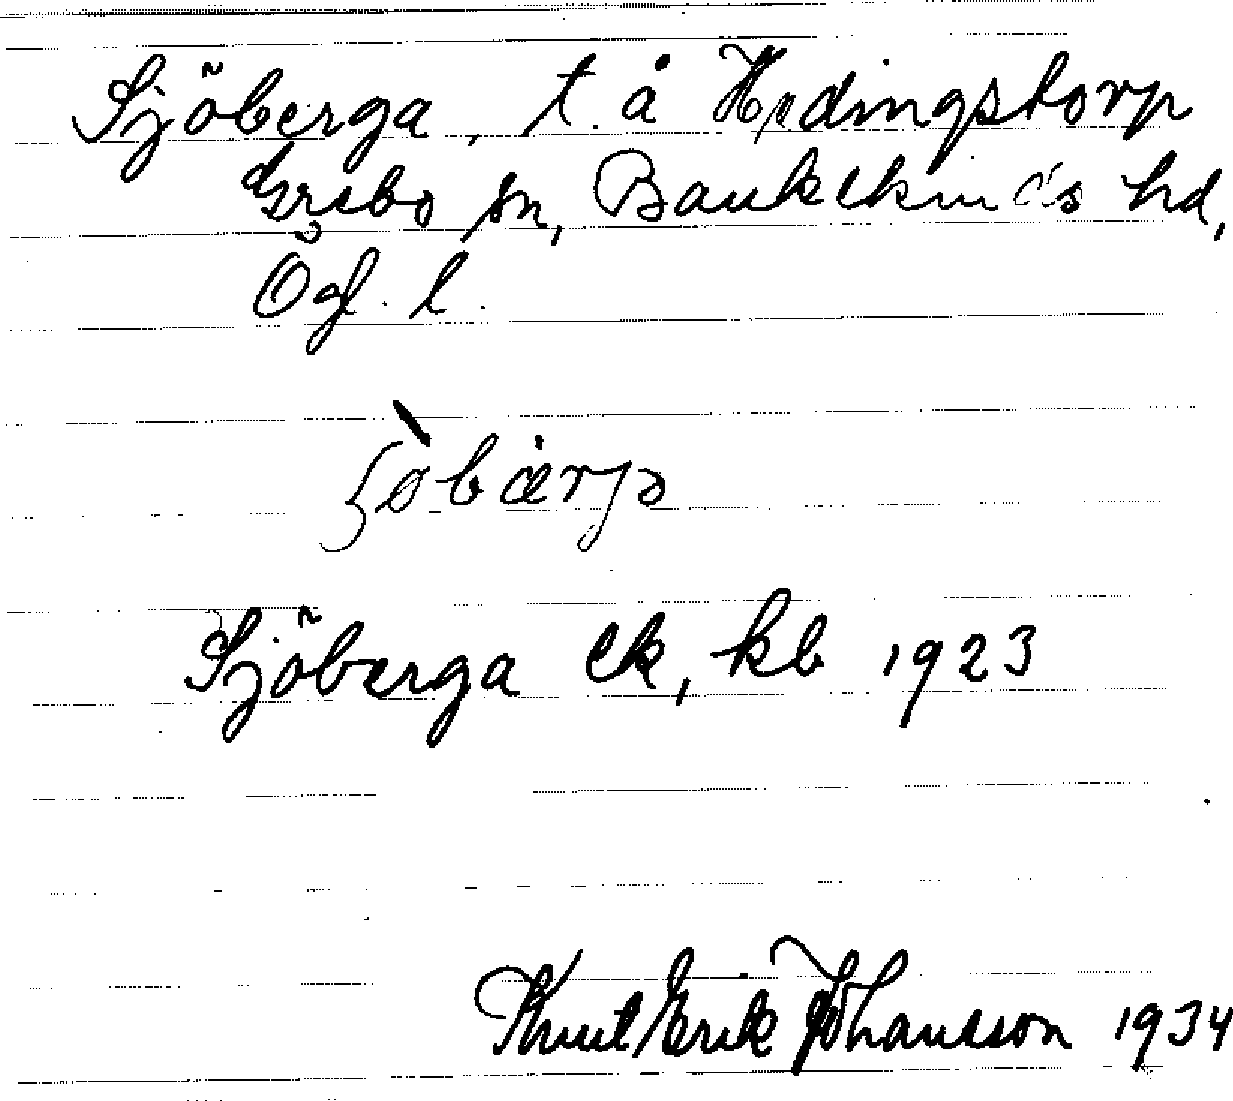 Sjöberga, t. å Hödingstorp
Grebo sn, Bankekinds hd,
Ögl. l.
Sjöberga ek, kb 1923
Knut Erik Johansson 1934